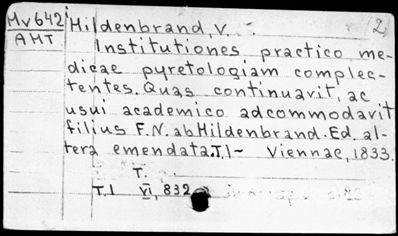 Mv 642 Hildenbrand, V. 2
AMT Institutiones practico me-
dicae pyretologiam complec-
tentes. Quas continuavit, ac
usui academico adcommodavit
filius F.N. ab Hildenbrand. Ed. al-
tera emendata. T.I~ Viennae, 1833.
T.
T.I VI, 832